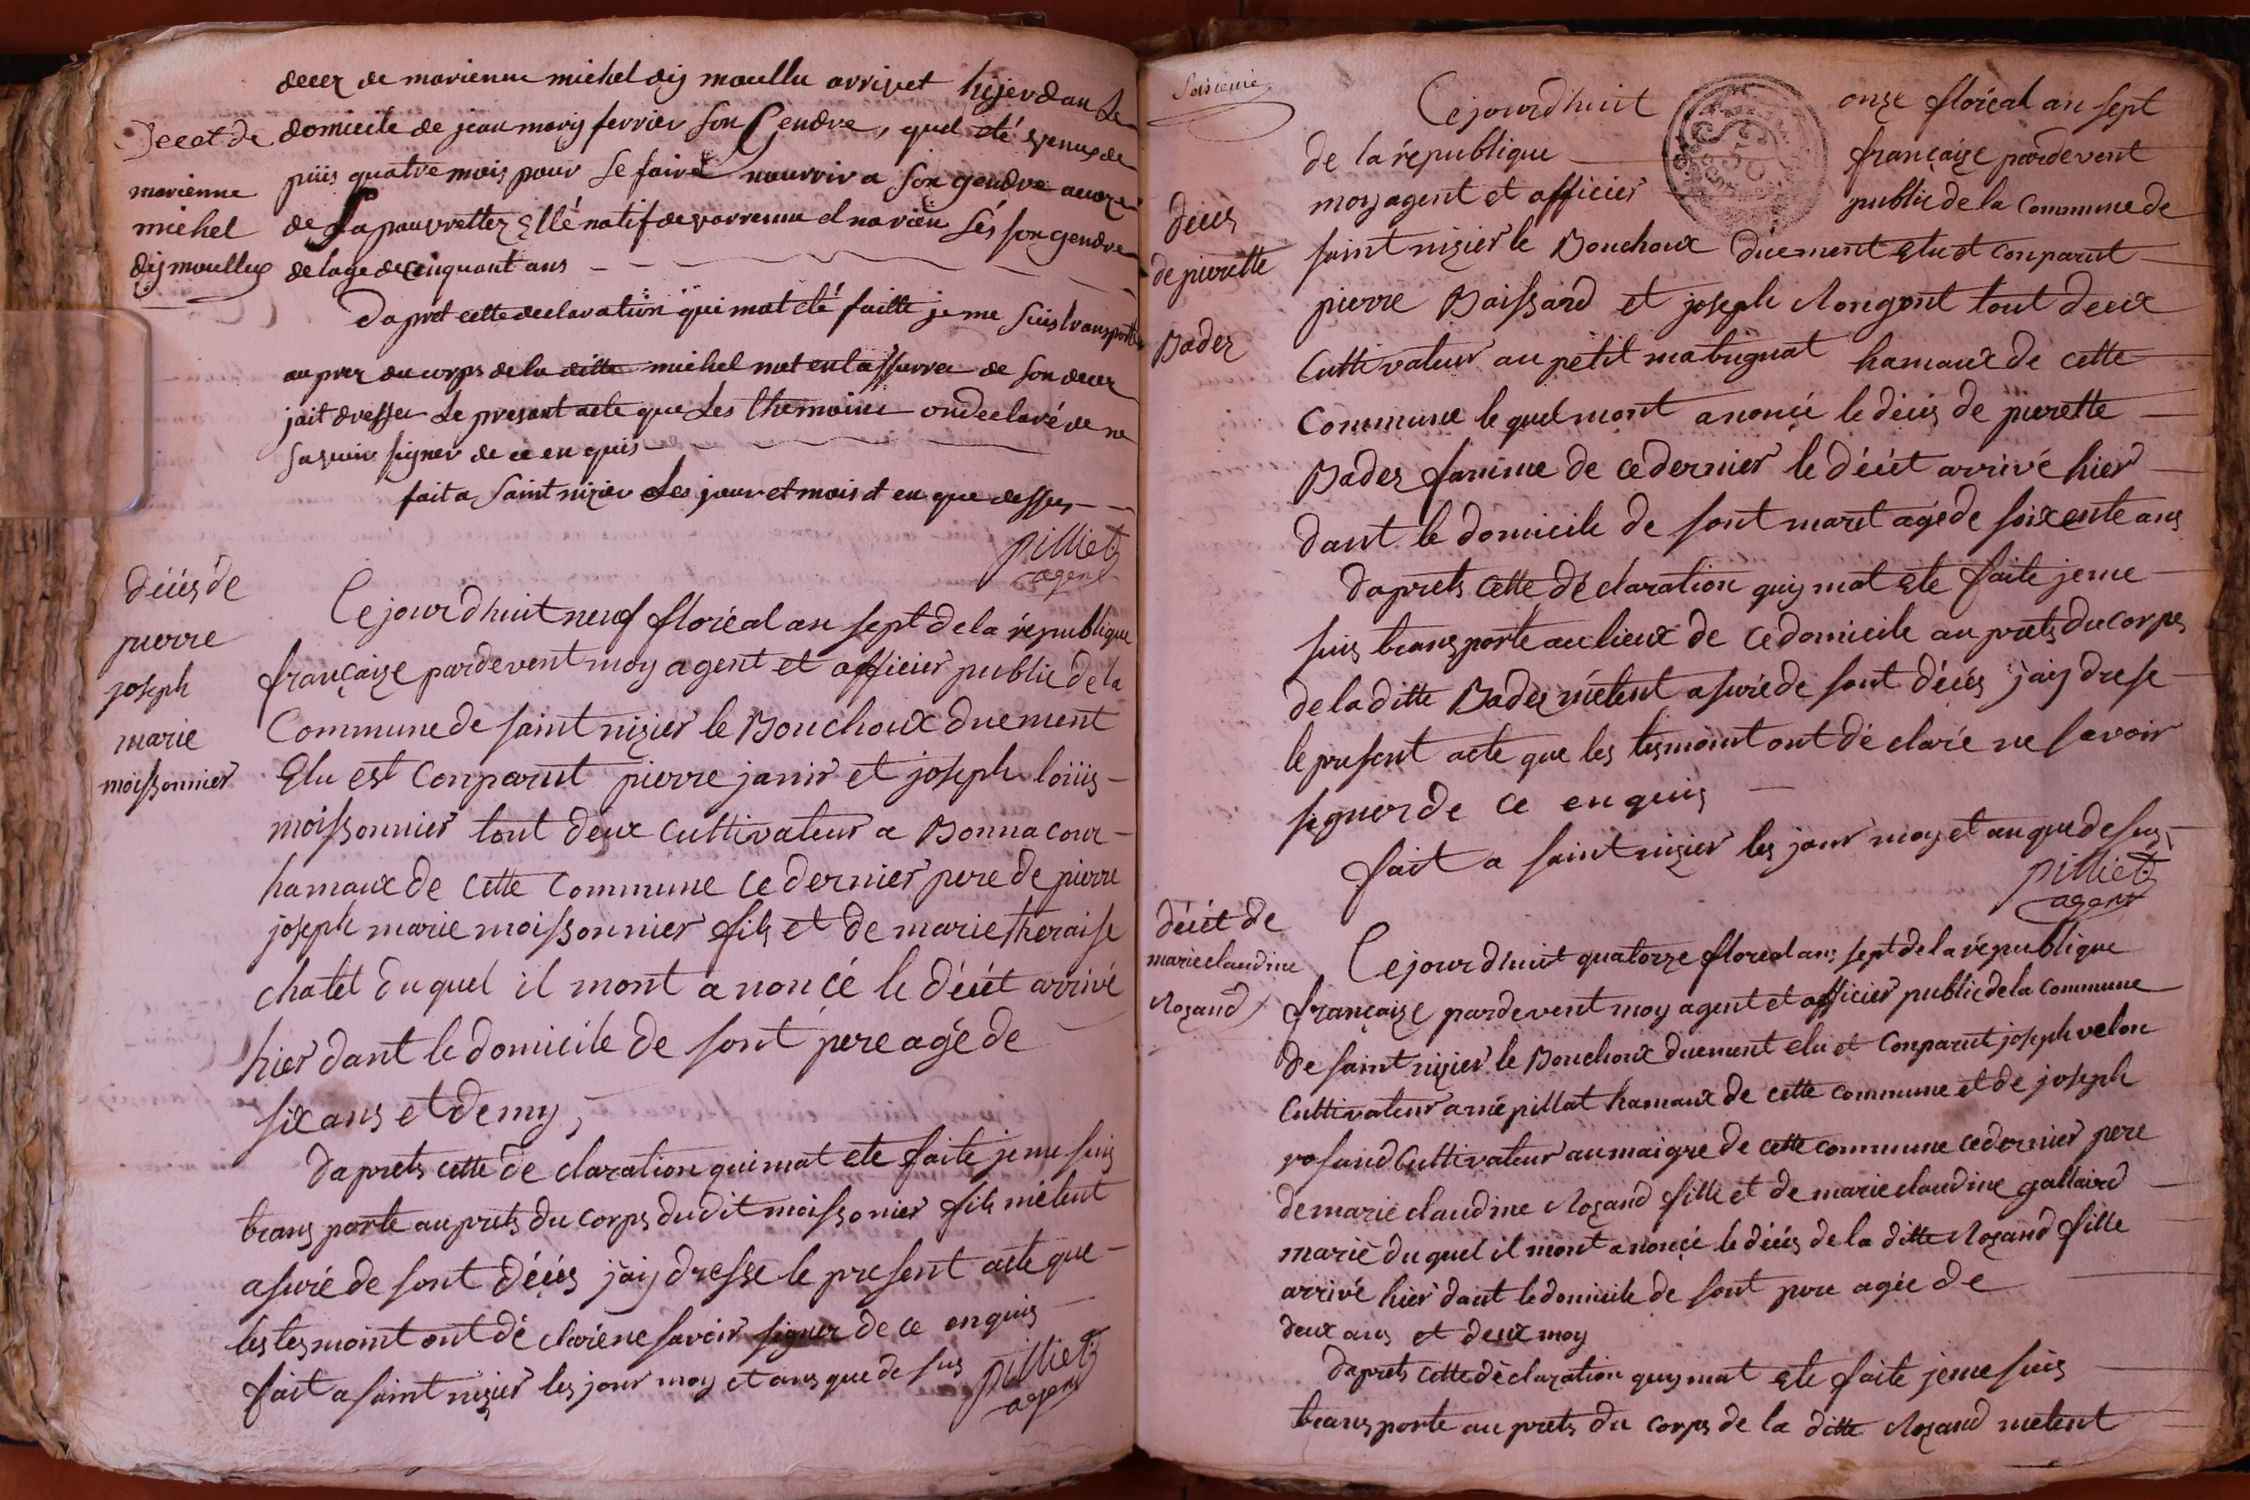 decez de marienne michel dij moullu arrivet hijer dan Le
Decet de
marienne
michel
dij moullux
domicile de jean marij ferrier son Gendre, quel eté venux de
puis quatre mois pour Se faire nourrir a son gendre
de Sa pauvrettez Ellé natif de varrenne el na rien Lés son gendre
de lage de cinquant ans
Dapret cette declaration qui mat eté faitte je me suis transporte
au prez du corps de la ditte michel met en lassurre de son decez
jait dresser Le present acte que Les themoins on declaré de ne
sasvoir signer de ce en quis
fait a Saint nizier Les jour et mois et en que dessus
pilliet
agent
déces de
pierre
joseph
marie
moissonnier
Ce jour dhuit neuf floréal an sept de la république
française pardevent moy agent et officier public de la
Commune de saint nizier le Bouchoux duement
Elu est Conparut pierre janin et joseph loüis
moissonnier tout deux cultivateur a Bonna cour
hamaux de cette commune ce dernier pere de pierre
joseph marie moissonnier fils et de marie theraise
chatel du quel il mont anoncé le décét arrivé
hier dant le domicile de sont pere agé de
six ans et demy,
Daprets cette de claration qui mat ete faite je me suis
trans porte au prets du corps du dit moissonier fils métent
asuré de sont décés jaij dresse le present acte que
les tesmoint ont dé claré ne savoir signer de ce enquis
fait a saint nizier les jour moy et ans que de sus
pilliet
agent
Ce jour dhuit onze floréal an sept
de la république française pardevent
moy agent et officier public de la Commune de
décés
de pierette
Badez
saint nizier le Bouchoux duement Elu et Conparut
pierre Boissard et joseph Rongent tout deux
Cultivateur au petit matignat hamaux de cette
Commune le quel mont anoncé le décés de pierette
Badez famme de ce dernier le décét arrivé hier
dant le domicile de sont maret agé de soixente ans
Daprets cette dé claration quij mat Ete faite je me
suis transporté au lieux de ce domicile au prets du corps
de la ditte Badez métent asuré de sont décés jaij drese
le present acte que les tesmoint ont dé claré ne savoir
signer de ce en quis
fait a saint nizier les jour moy et an que de sus
pilliet
agent
décét de
marie claudine
Rozand
Ce jour dhuit quatorze floreal an sept de la république
française pardevent moy agent et officier public de la commune
de saint nizier le Bouchoux duement elu et Conparut joseph velon
Cultivateur a mépillat hamaux de cette commune et de joseph
rosand Cultivateur au maigre de cette commune ce dernier pere
de marie claudine Rozand fille et de marie claudine gallaird
marie du quel il mont anoncé le décés de la ditte Rozand fille
arrivé hier dant le domicile de sont pere agée de
deux ans et deux moy
Daprets cette déclaration quij mat Ete faite je me suis
trans porte au prets du corps de la ditte Rozand metent